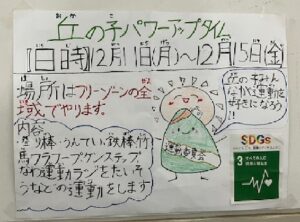 丘の子パワーアップタイム
日時 12月11日(月)〜12月15日(金)
場所はフリーゾーンの全
域でやります。
内容
登り棒・うんてい・鉄棒・竹
馬フラフープケンステップ、
なわ運動
などの運動をします
丘の子みん
なが運動を
好きになろう
!!
運動委員会
SDGs
3 すべての人に
健康と福祉を